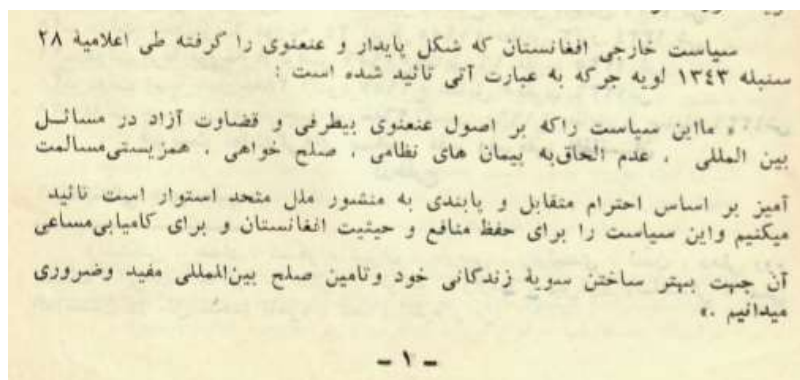 سیاست خارجی افغانستان که شکل پایدار و عنعنوی را گرفته طی اعلامیهٔ ۲۸
سنبله ۱۳٤۳ لویه جرکه به عبارت آتی تائید شده است :
« مااین سیاست راکه بر اصول عنعنوی بیطرفی و قضاوت آزاد در مسائل
بین المللی ، عدم الحاق‌به پیمان های نظامی ، صلح خواهی ، همزیستی‌مسالمت
آمیز بر اساس احترام متقابل و پابندی به منشور ملل متحد استوار است تائید
میکنیم واین سیاست را برای حفظ منافع و حیثیت افغانستان و برای کامیابی‌مساعی
آن جهت بهتر ساختن سویهٔ زندگانی خود وتامین صلح بین‌المللی مفید وضروری
میدانیم .»
- ۱ -